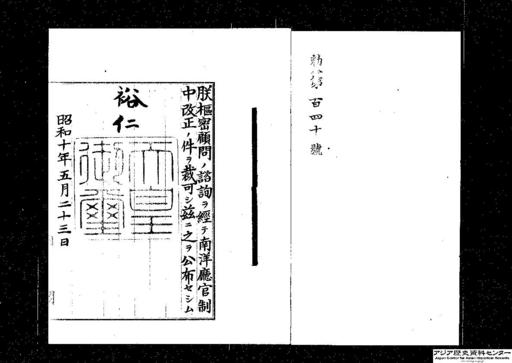 勅令第百四十號
朕樞密顧問ノ諮詢ヲ經テ南洋廳官制
中改正ノ件ヲ裁可シ茲ニ之ヲ公布セシム
裕仁
天皇御璽
昭和十年五月二十三日
アジア歴史資料センター
Japan Center for Asian Historical Records